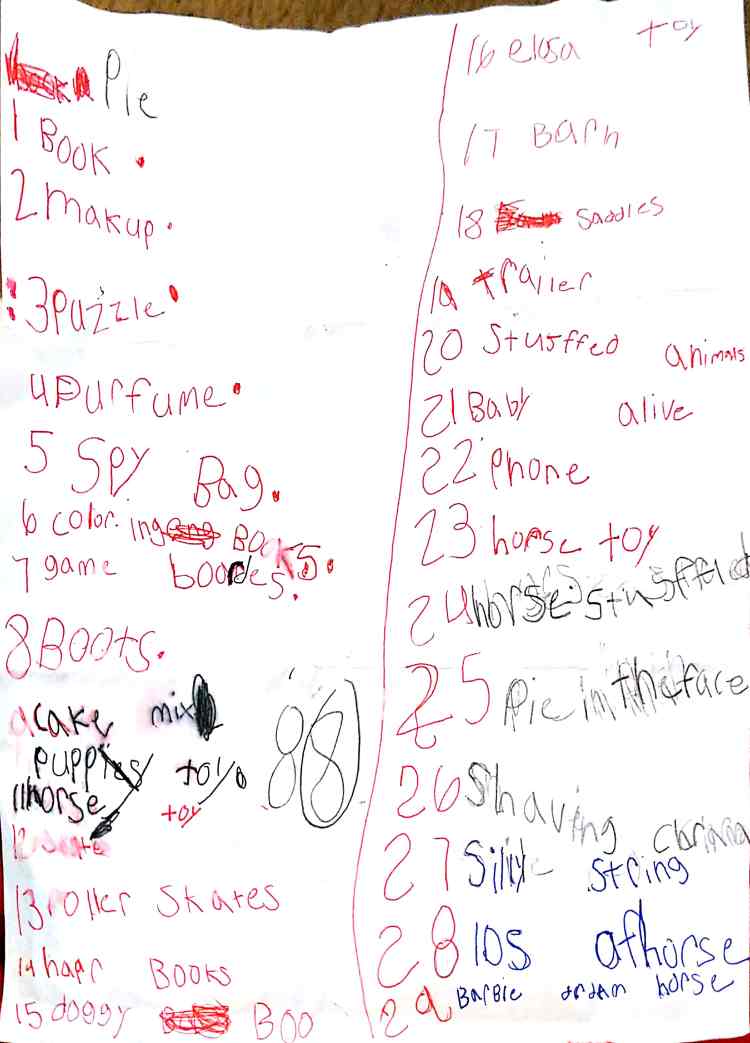 Pie
1 Book.
2 makup.
3 Puzzle
4 Purfume.
5 Spy Bag.
6 coloring Books.
7 game boordes.
8 Boots.
9 cake mix
puppy toy
11 horse toy
12
13 roller skates
14 hapr Books
15 doggy Boo
88
16 elsa toy
17 Barn
18 saddles
19 trailer
20 Stuffed animals
21 Baby alive
22 Phone
23 horse toy
24 horse stuffed
25 Pie in the face
26 Shaving
27 Silly string
28 lOS af horse
29 Barbie dream horse